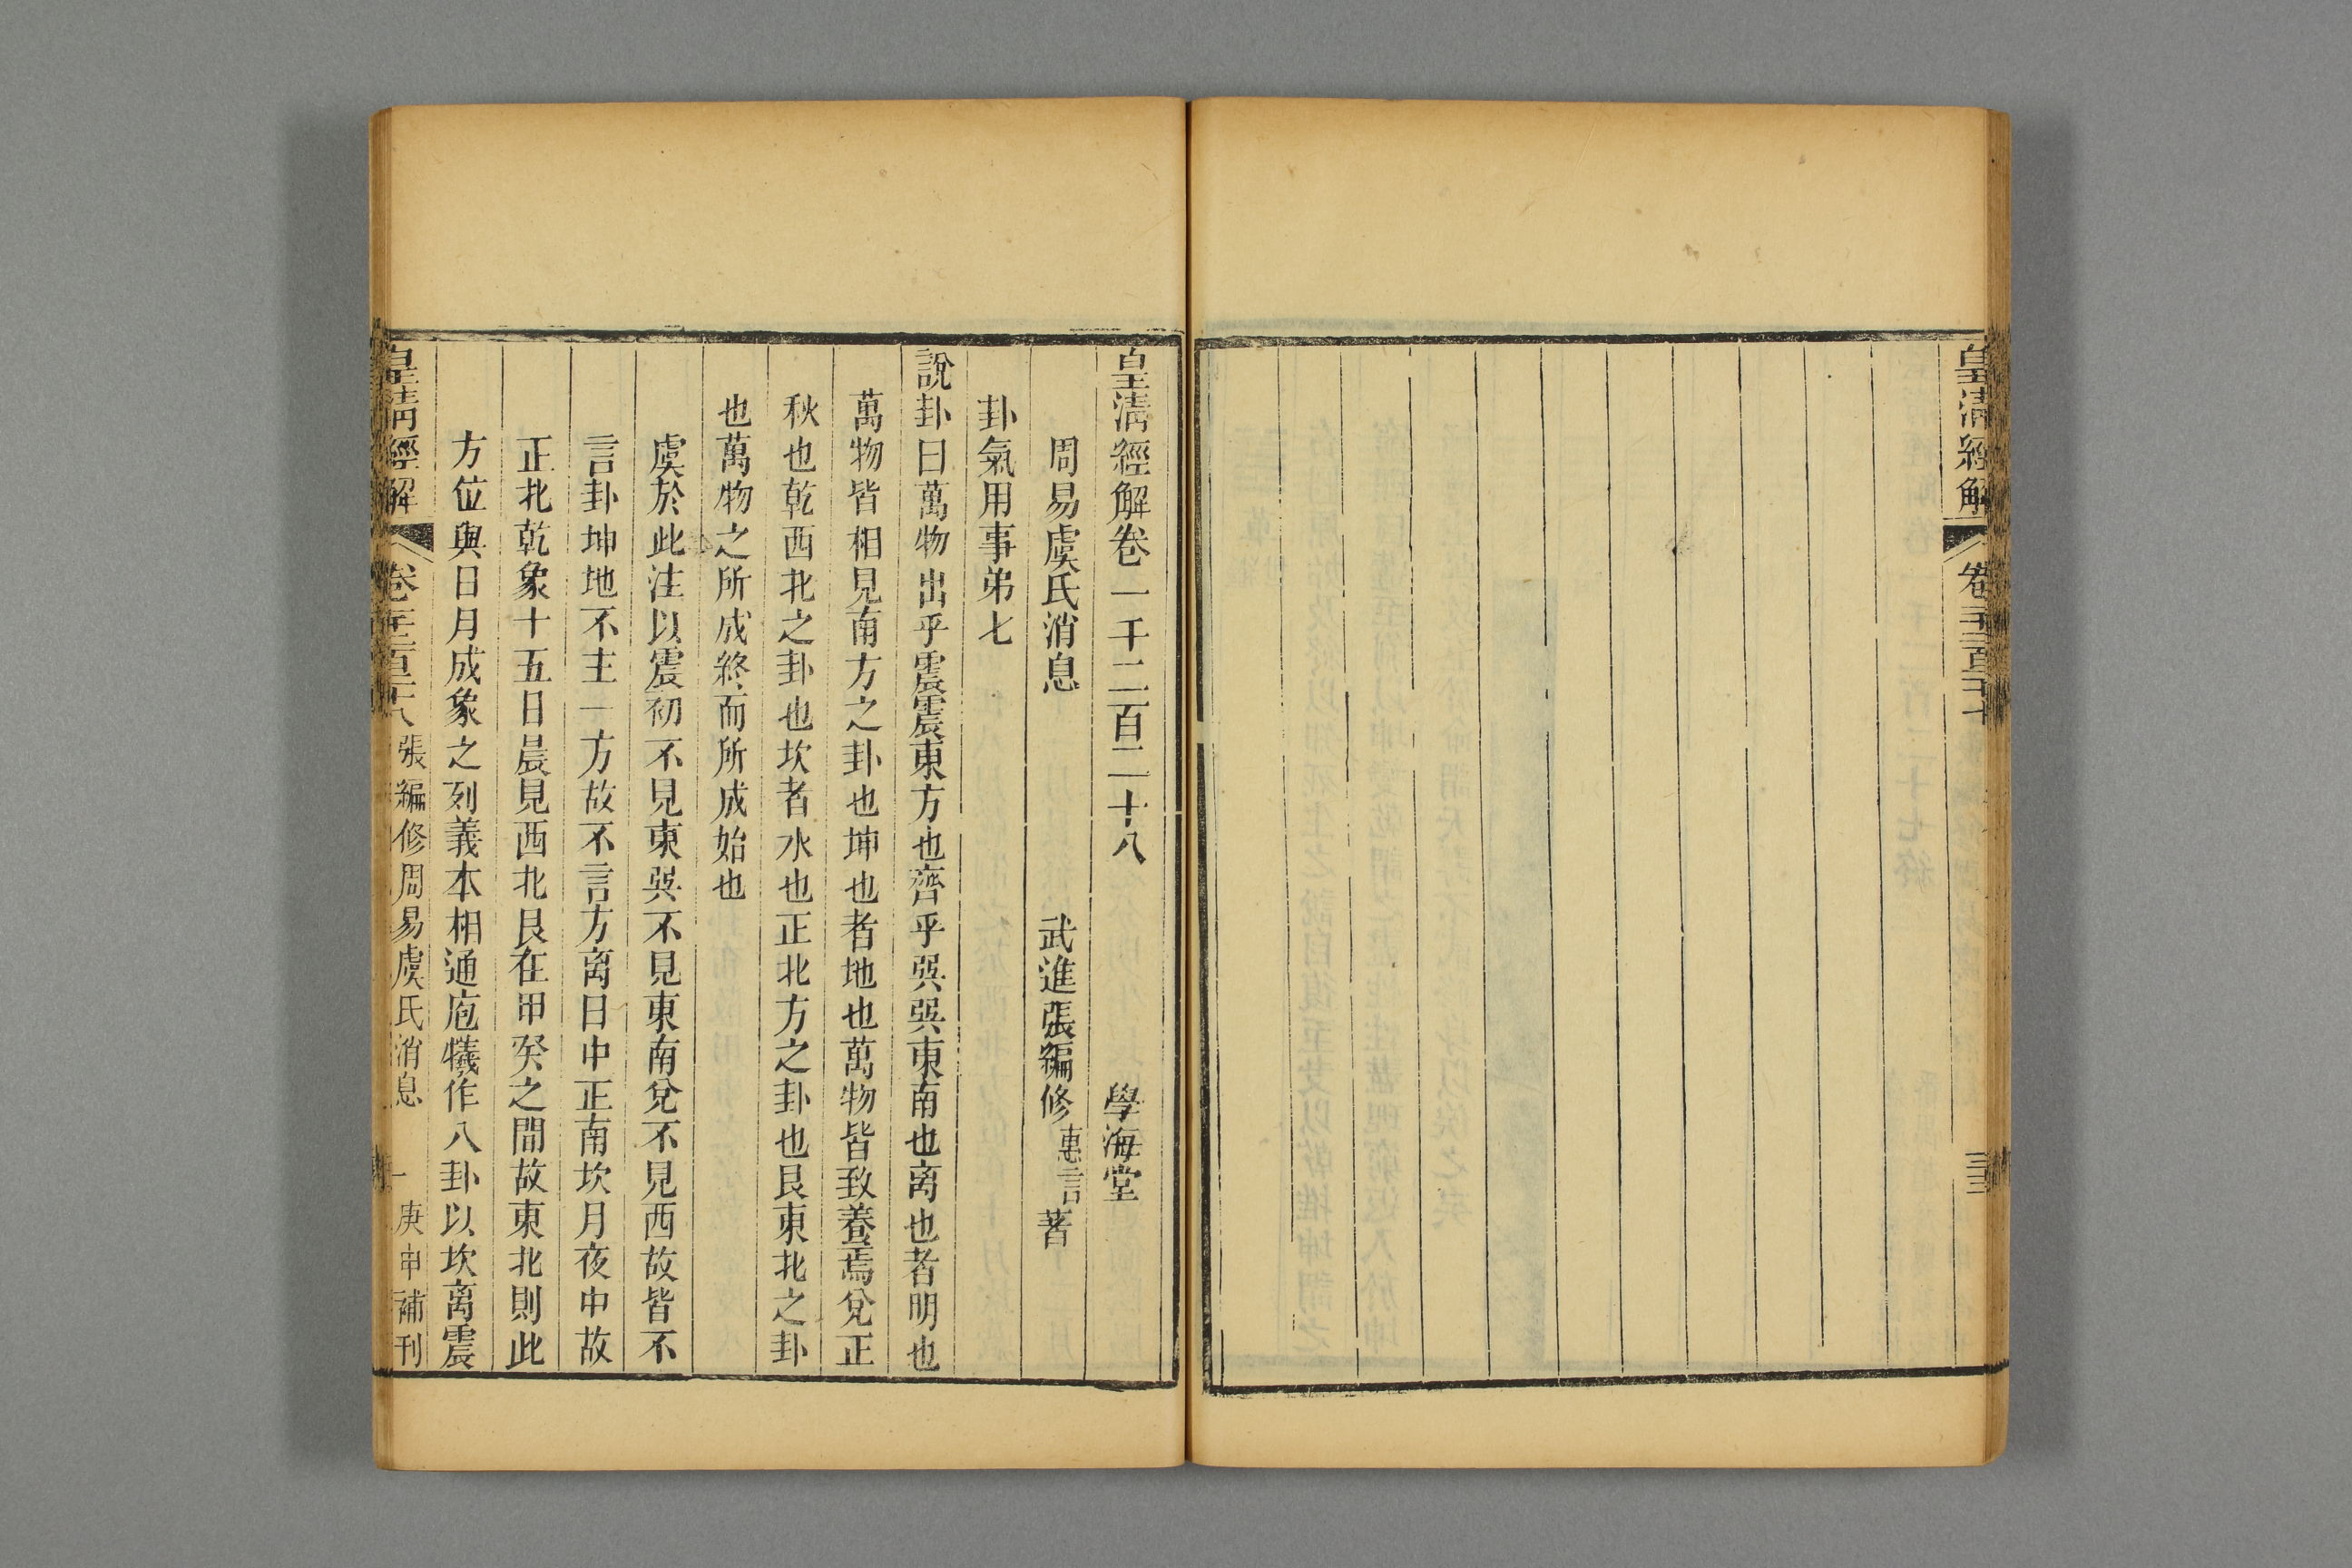 皇清經解
皇清經解卷一千二百二十八
學海堂
周易虞氏消息
武進張編修惠言著
卦氣用事弟七
說卦曰萬物出乎震震東方也齊乎巽巽東南也离也者明也
萬物皆相見南方之卦也坤也者地也萬物皆致養焉兌正
秋也乾西北之卦也坎者水也正北方之卦也艮東北之卦
也萬物之所成終而所成始也
虞於此注以震初不見東巽不見東南兌不見西故皆不
言卦坤地不主一方故不言方离日中正南坎月夜中故
正北乾象十五日晨見西北艮在甲癸之間故東北則此
方位與日月成象之列義本相通庖犧作八卦以坎离震
皇清經解 卷千二百二十八 張編修周易虞氏消息 一 庚申補刊